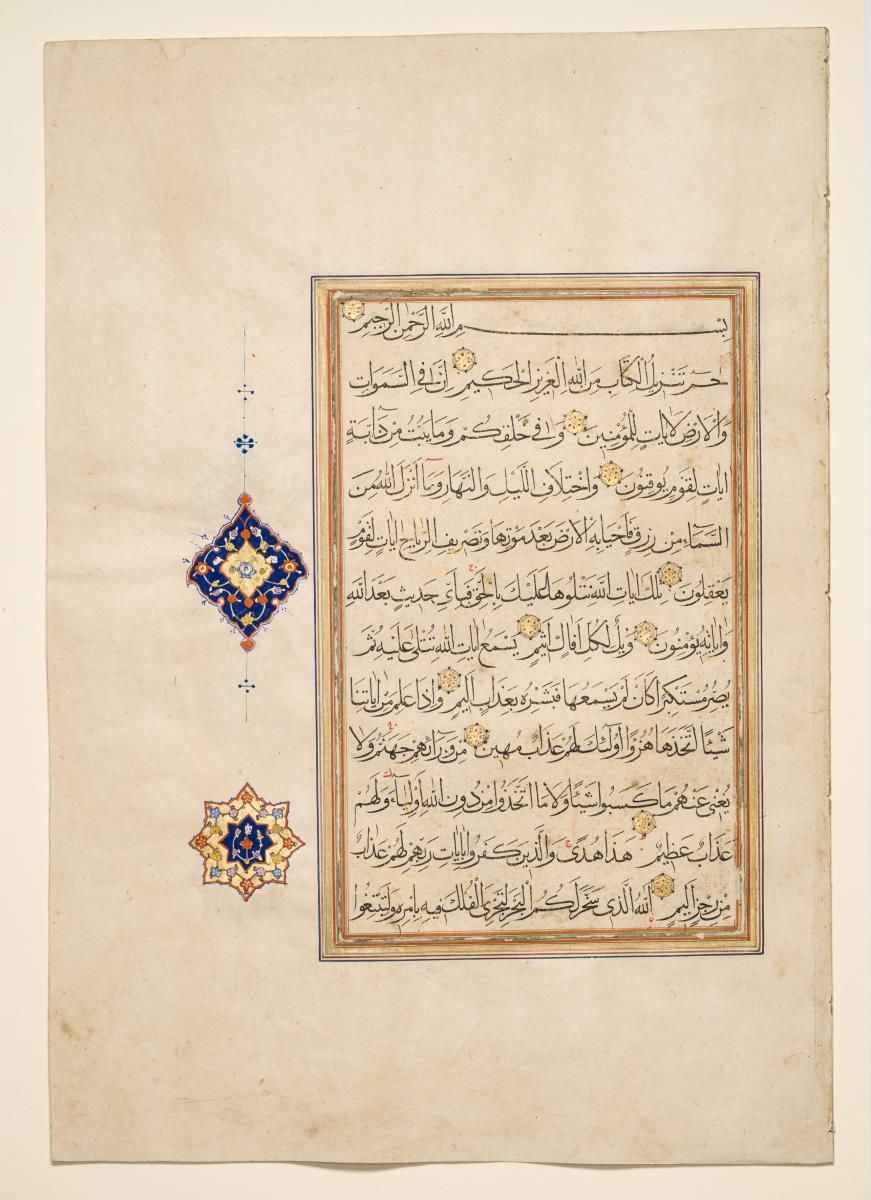 بِسْمِ اللَّهِ الرَّحْمٰنِ الرَّحِيمِ
حٰمٓ تَنْزِيلُ الْكِتَابِ مِنَ اللهِ الْعَزِيزِ الْحَكِيمِ اِنَّ فِي السَّمَوَاتِ
وَالْاَرْضِ لَاٰيَاتٍ لِلْمُؤْمِنِينَ وَفِي خَلْقِكُمْ وَمَا يَبُثُّ مِنْ دَآبَّةٍ
اٰيَاتٌ لِقَوْمٍ يُوقِنُونَ وَاخْتِلَافِ اللَّيْلِ وَالنَّهَارِ وَمَا اَنْزَلَ اللهُ مِنَ
السَّمَاءِ مِنْ رِزْقٍ فَاَحْيَا بِهِ الْاَرْضَ بَعْدَ مَوْتِهَا وَتَصْرِيفِ الرِّيَاحِ اٰيَاتٌ لِقَوْمٍ
يَعْقِلُونَ تِلْكَ اٰيَاتُ اللهِ نَتْلُوهَا عَلَيْكَ بِالْحَقِّ فَبِاَيِّ حَدِيثٍ بَعْدَ اللهِ
وَاٰيَاتِهِ يُؤْمِنُونَ وَيْلٌ لِكُلِّ اَفَّاكٍ اَثِيمٍ يَسْمَعُ اٰيَاتِ اللهِ تُتْلَى عَلَيْهِ ثُمَّ
يُصِرُّ مُسْتَكْبِرًا كَاَنْ لَمْ يَسْمَعْهَا فَبَشِّرْهُ بِعَذَابٍ اَلِيمٍ وَاِذَا عَلِمَ مِنْ اٰيَاتِنَا
شَيْئًا اتَّخَذَهَا هُزُوًا اُولٰئِكَ لَهُمْ عَذَابٌ مُهِينٌ مِنْ وَرَائِهِمْ جَهَنَّمُ وَلَا
يُغْنِي عَنْهُمْ مَا كَسَبُوا شَيْئًا وَلَا مَا اتَّخَذُوا مِنْ دُونِ اللهِ اَوْلِيَاءَ وَلَهُمْ
عَذَابٌ عَظِيمٌ هٰذَا هُدًى وَالَّذِينَ كَفَرُوا بِاٰيَاتِ رَبِّهِمْ لَهُمْ عَذَابٌ
مِنْ رِجْزٍ اَلِيمٍ اَللهُ الَّذِي سَخَّرَ لَكُمُ الْبَحْرَ لِتَجْرِيَ الْفُلْكُ فِيهِ بِاَمْرِهِ وَلِتَبْتَغُوا